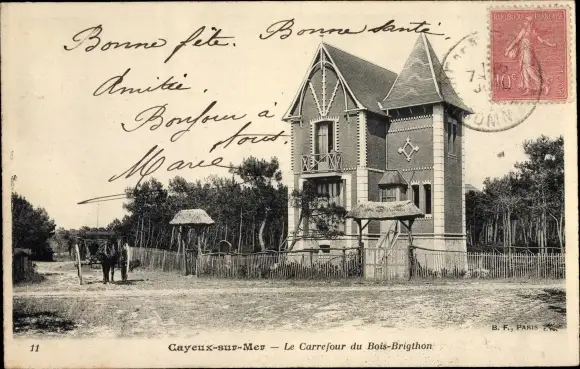 Bonne fête. Bonne Santé.
Amitié.
Bonjour à
tous.
Marie
RÉPUBLIQUE FRANÇAISE
10c
11 Cayeux-sur-Mer — Le Carrefour du Bois-Brigthon
B. F., PARIS